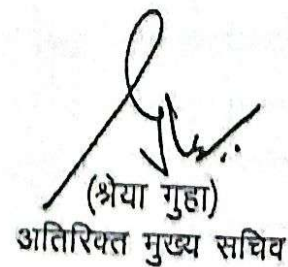 (श्रेया गुहा)
अतिरिक्त मुख्य सचिव